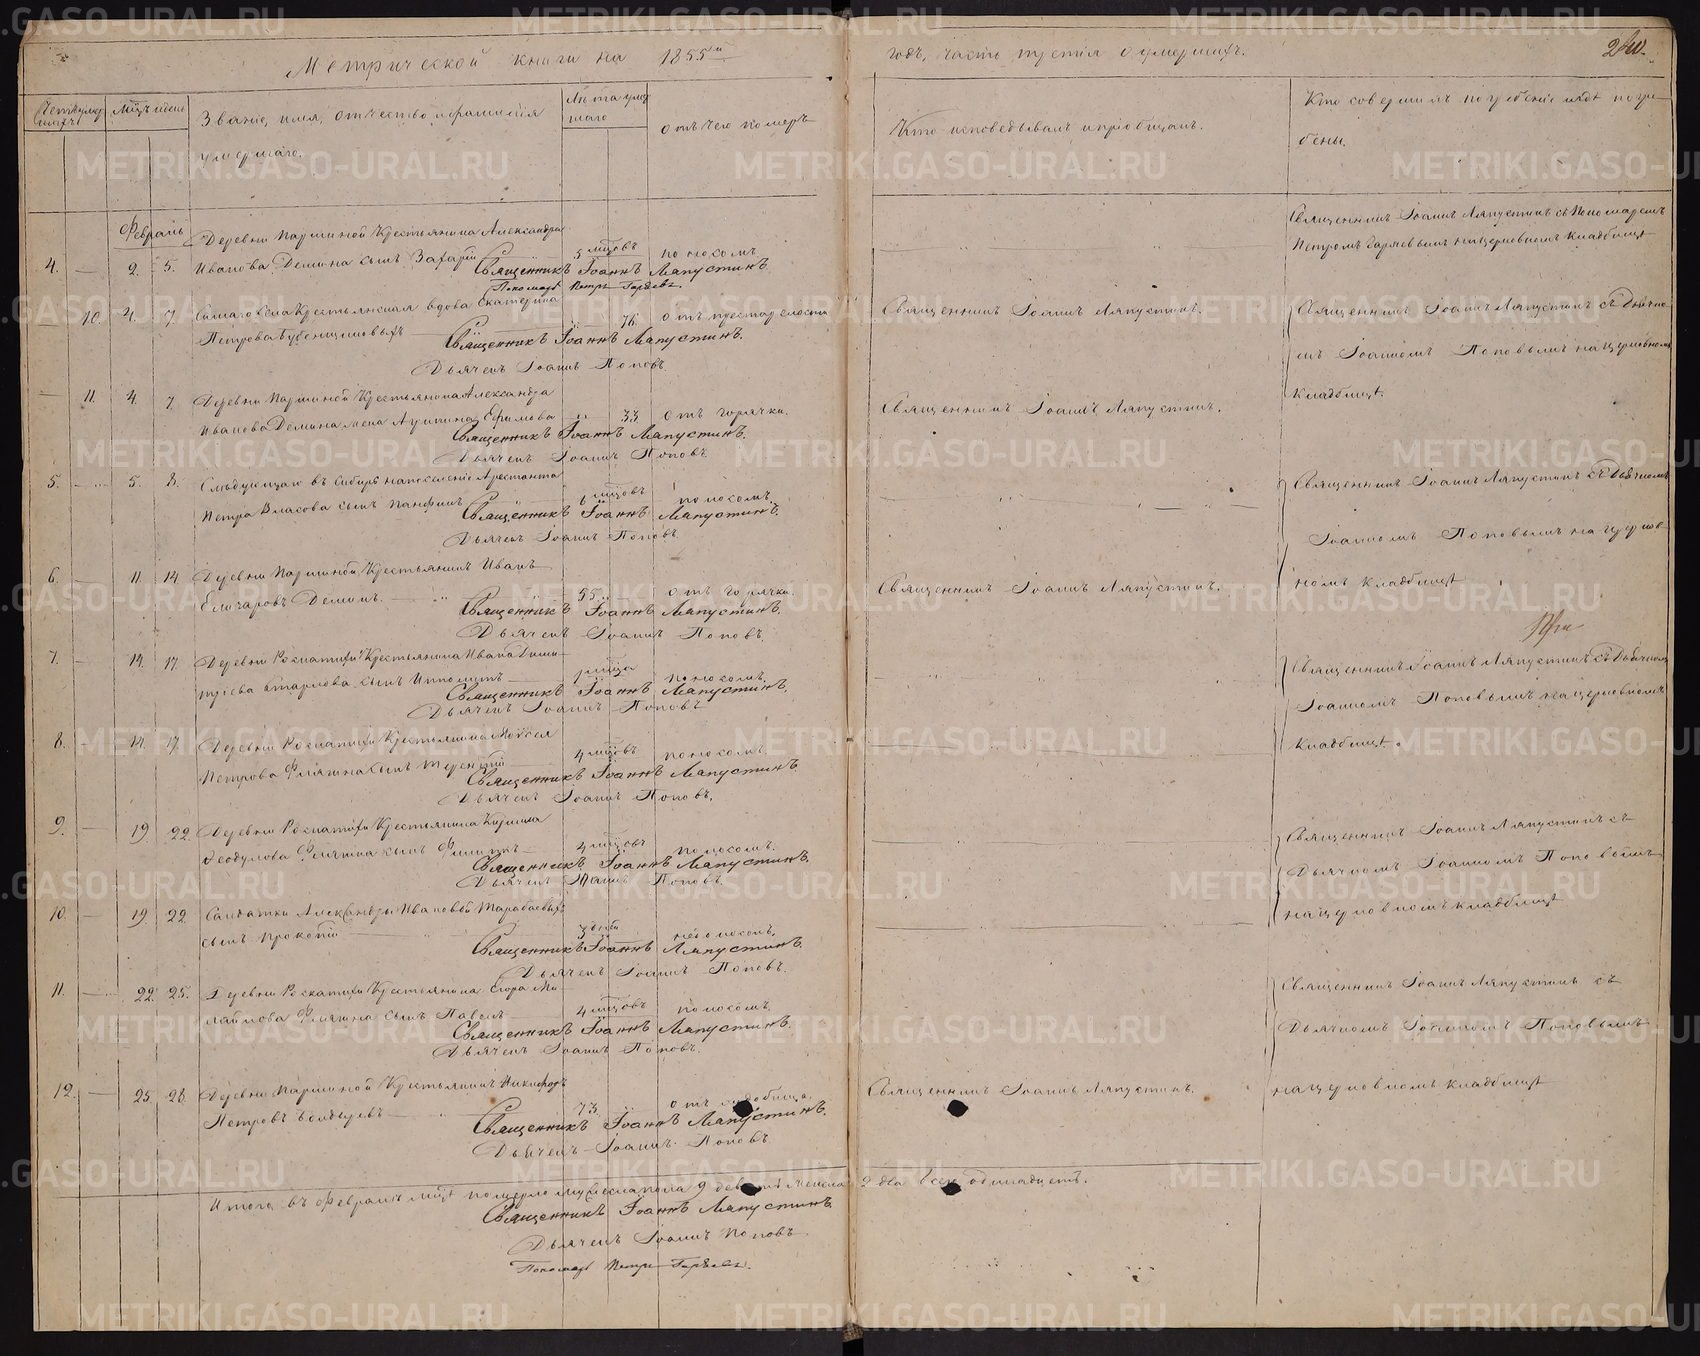 Метрической книги на 1855й
годъ, часть третія о умершихъ.
Мѣсяцъ и день
Званіе, имя, отчество и фамилія
умершаго.
Лѣта умер
шаго
отъ чего померъ
Кто исповѣдывалъ и пріобщалъ.
Кто совершилъ погребеніе и гдѣ погре
бены.
Февраль
4. 2. 5. Деревни Паршиной Крестьянина Александра
Иванова Демина сынъ Захарій 5 мцовъ поносомъ
Священникъ Іоаннъ Ляпустинъ
Пономарь Петръ
Священникъ Іоаннъ Ляпустинъ съ Пономаремъ
Петромъ на церковномъ кладбищѣ
10. 4. 7. Крестьянская вдова Екатерина
Петрова 76 отъ престарелости
Священникъ Іоаннъ Ляпустинъ.
Дьячекъ Іоаннъ Поповъ.
Священникъ Іоаннъ Ляпустинъ.
Священникъ Іоаннъ Ляпустинъ съ Дьячко
мъ Іоанномъ Поповымъ на церковномъ
кладбищѣ.
11. 4. 7. Деревни Паршиной Крестьянина Александра
Иванова Демина жена Ефимова 33 отъ горячки.
Священникъ Іоаннъ Ляпустинъ.
Дьячекъ Іоаннъ Поповъ
Священникъ Іоаннъ Ляпустинъ.
5. 5. 8. Слѣдующаго въ Сибирь на поселеніе Арестанта
Петра Власова сынъ Панфилъ 6 мцовъ поносомъ
Священникъ Іоаннъ Ляпустинъ.
Дьячекъ Іоаннъ Поповъ
Священникъ Іоаннъ Ляпустинъ съ Дьячкомъ
Іоанномъ Поповымъ на церков
номъ кладбищѣ
6. 11. 14. Деревни Паршиной Крестьянинъ Иванъ
Деминъ. 55 отъ горячки.
Священникъ Іоаннъ Ляпустинъ.
Дьячекъ Іоаннъ Поповъ.
Священникъ Іоаннъ Ляпустинъ.
7. 14. 17. Деревни Роскатихи Крестьянина Ивана Дими
тріева сынъ Ипполитъ 1 мца поносомъ.
Священникъ Іоаннъ Ляпустинъ.
Дьячекъ Іоаннъ Поповъ
Священникъ Іоаннъ Ляпустинъ съ Дьячкомъ
Іоанномъ Поповымъ на церковномъ
кладбищѣ.
8. 14. 17. Деревни Роскатихи Крестьянина Моѵсея
Петрова Флягина сынъ Терентій 4 мцовъ поносомъ.
Священникъ Іоаннъ Ляпустинъ
Дьячекъ Іоаннъ Поповъ.
9. 19. 22. Деревни Роскатихи Крестьянина Кирилла
Ѳеодулова Флягина сынъ Филиппъ 4 мцовъ поносомъ.
Священникъ Іоаннъ Ляпустинъ.
Дьячекъ Іоаннъ Поповъ.
Священникъ Іоаннъ Ляпустинъ съ
Дьячкомъ Іоанномъ Поповымъ
на церковномъ кладбищѣ
10. 19. 22. Солдатки Александры Ивановой
сынъ Прокопій 3 дней поносомъ.
Священникъ Іоаннъ Ляпустинъ.
Дьячекъ Іоаннъ Поповъ.
11. 22. 25. Деревни Роскатихи Крестьянина Егора Ми
хайлова Флягина сынъ Павелъ 4 мцовъ поносомъ.
Священникъ Іоаннъ Ляпустинъ.
Дьячекъ Іоаннъ Поповъ.
Священникъ Іоаннъ Ляпустинъ съ
Дьячкомъ Іоанномъ Поповымъ
на церковномъ кладбищѣ
12. 25. 28. Деревни Паршиной Крестьянинъ Никифоръ
Петровъ 73
Священникъ Іоаннъ Ляпустинъ.
Дьячекъ Іоаннъ Поповъ
Священникъ Іоаннъ Ляпустинъ.
Итого въ Февралѣ мцѣ померло мужеска пола 9 девять женска 2 два всего одинадцать.
Священникъ Іоаннъ Ляпустинъ.
Дьячекъ Іоаннъ Поповъ
Пономарь Петръ
METRIKI.GASO-URAL.RU